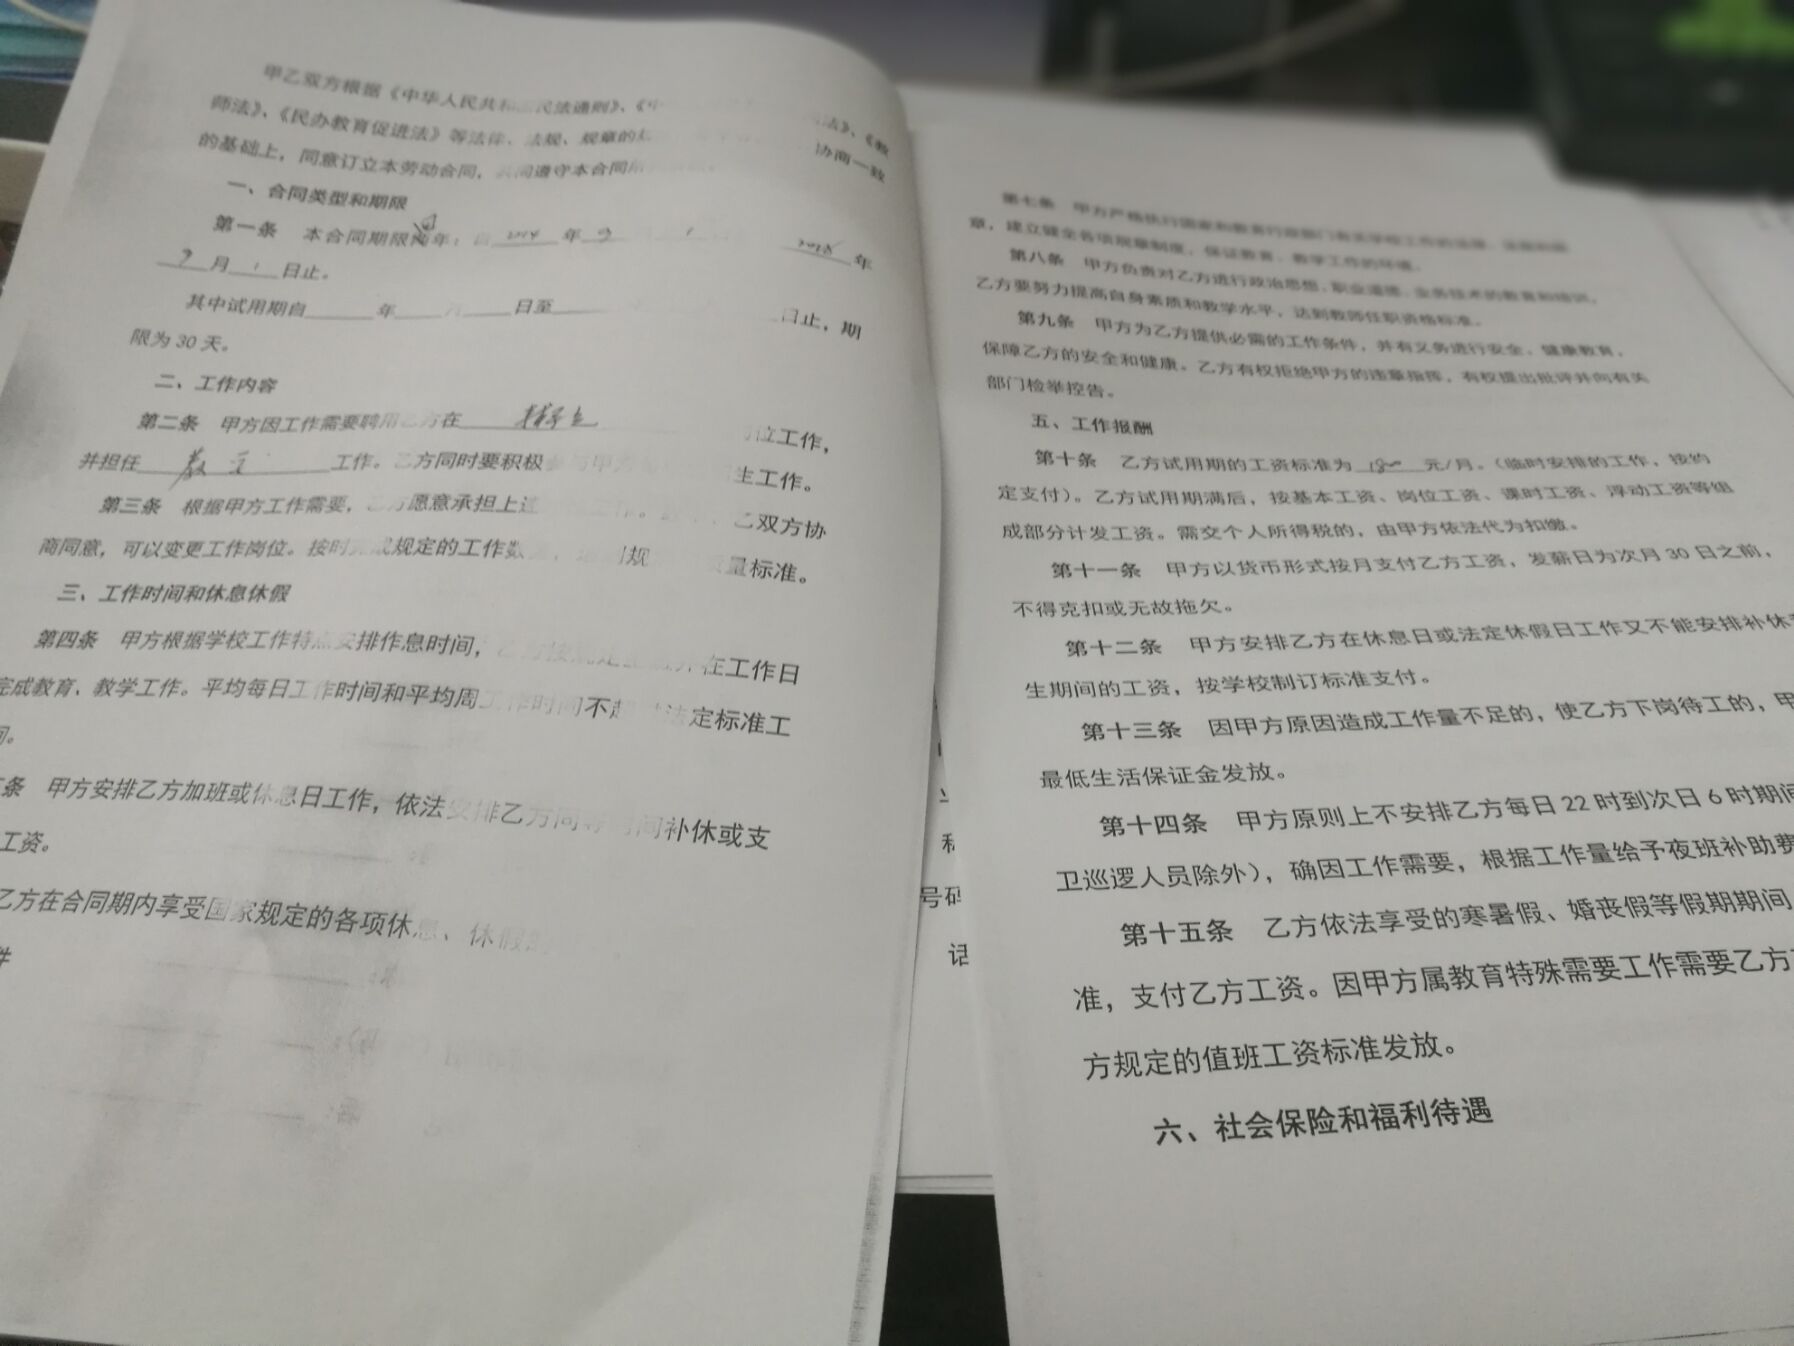 甲乙双方根据《中华人民共和 民法通则》、《中 法》、《教
师法》、《民办教育促进法》等法律、法规、规章的 协商一致
的基础上，同意订立本劳动合同，共同遵守本合同所
一、合同类型和期限
第一条 本合同期限 年：自 年 年
月 日止。
其中试用期自 年 月 日至 日止，期
限为 30 天。
二、工作内容
第二条 甲方因工作需要聘用乙方在 岗位工作，
并担任 工作。乙方同时要积极参与甲方 生工作。
第三条 根据甲方工作需要，乙方愿意承担上述 工作。 乙双方协
商同意，可以变更工作岗位。按时完成规定的工作数 规 质量标准。
三、工作时间和休息休假
第四条 甲方根据学校工作特点安排作息时间， 在工作日
完成教育、教学工作。平均每日工作时间和平均周工作时间不超 法定标准工
间。
条 甲方安排乙方加班或休息日工作，依法安排乙方同等时间补休或支
工资。
乙方在合同期内享受国家规定的各项休息、休假
件
号码
话
第七条 甲方严格执行国家和教育行政部门有关学校工作的法律、法规和规
章，建立健全各项规章制度，保证教育、教学工作的环境。
第八条 甲方负责对乙方进行政治思想、职业道德、业务技术的教育和培训，
乙方要努力提高自身素质和教学水平，达到教师任职资格标准。
第九条 甲方为乙方提供必需的工作条件，并有义务进行安全、健康教育，
保障乙方的安全和健康。乙方有权拒绝甲方的违章指挥，有权提出批评并向有关
部门检举控告。
五、工作报酬
第十条 乙方试用期的工资标准为 元/月。（临时安排的工作，按约
定支付）。乙方试用期满后，按基本工资、岗位工资、课时工资、浮动工资等组
成部分计发工资。需交个人所得税的，由甲方依法代为扣缴。
第十一条 甲方以货币形式按月支付乙方工资，发薪日为次月 30 日之前，
不得克扣或无故拖欠。
第十二条 甲方安排乙方在休息日或法定休假日工作又不能安排补休
生期间的工资，按学校制订标准支付。
第十三条 因甲方原因造成工作量不足的，使乙方下岗待工的，甲
最低生活保证金发放。
第十四条 甲方原则上不安排乙方每日 22 时到次日 6 时期间
卫巡逻人员除外），确因工作需要，根据工作量给予夜班补助费
第十五条 乙方依法享受的寒暑假、婚丧假等假期期间
准，支付乙方工资。因甲方属教育特殊需要工作需要乙方
方规定的值班工资标准发放。
六、社会保险和福利待遇